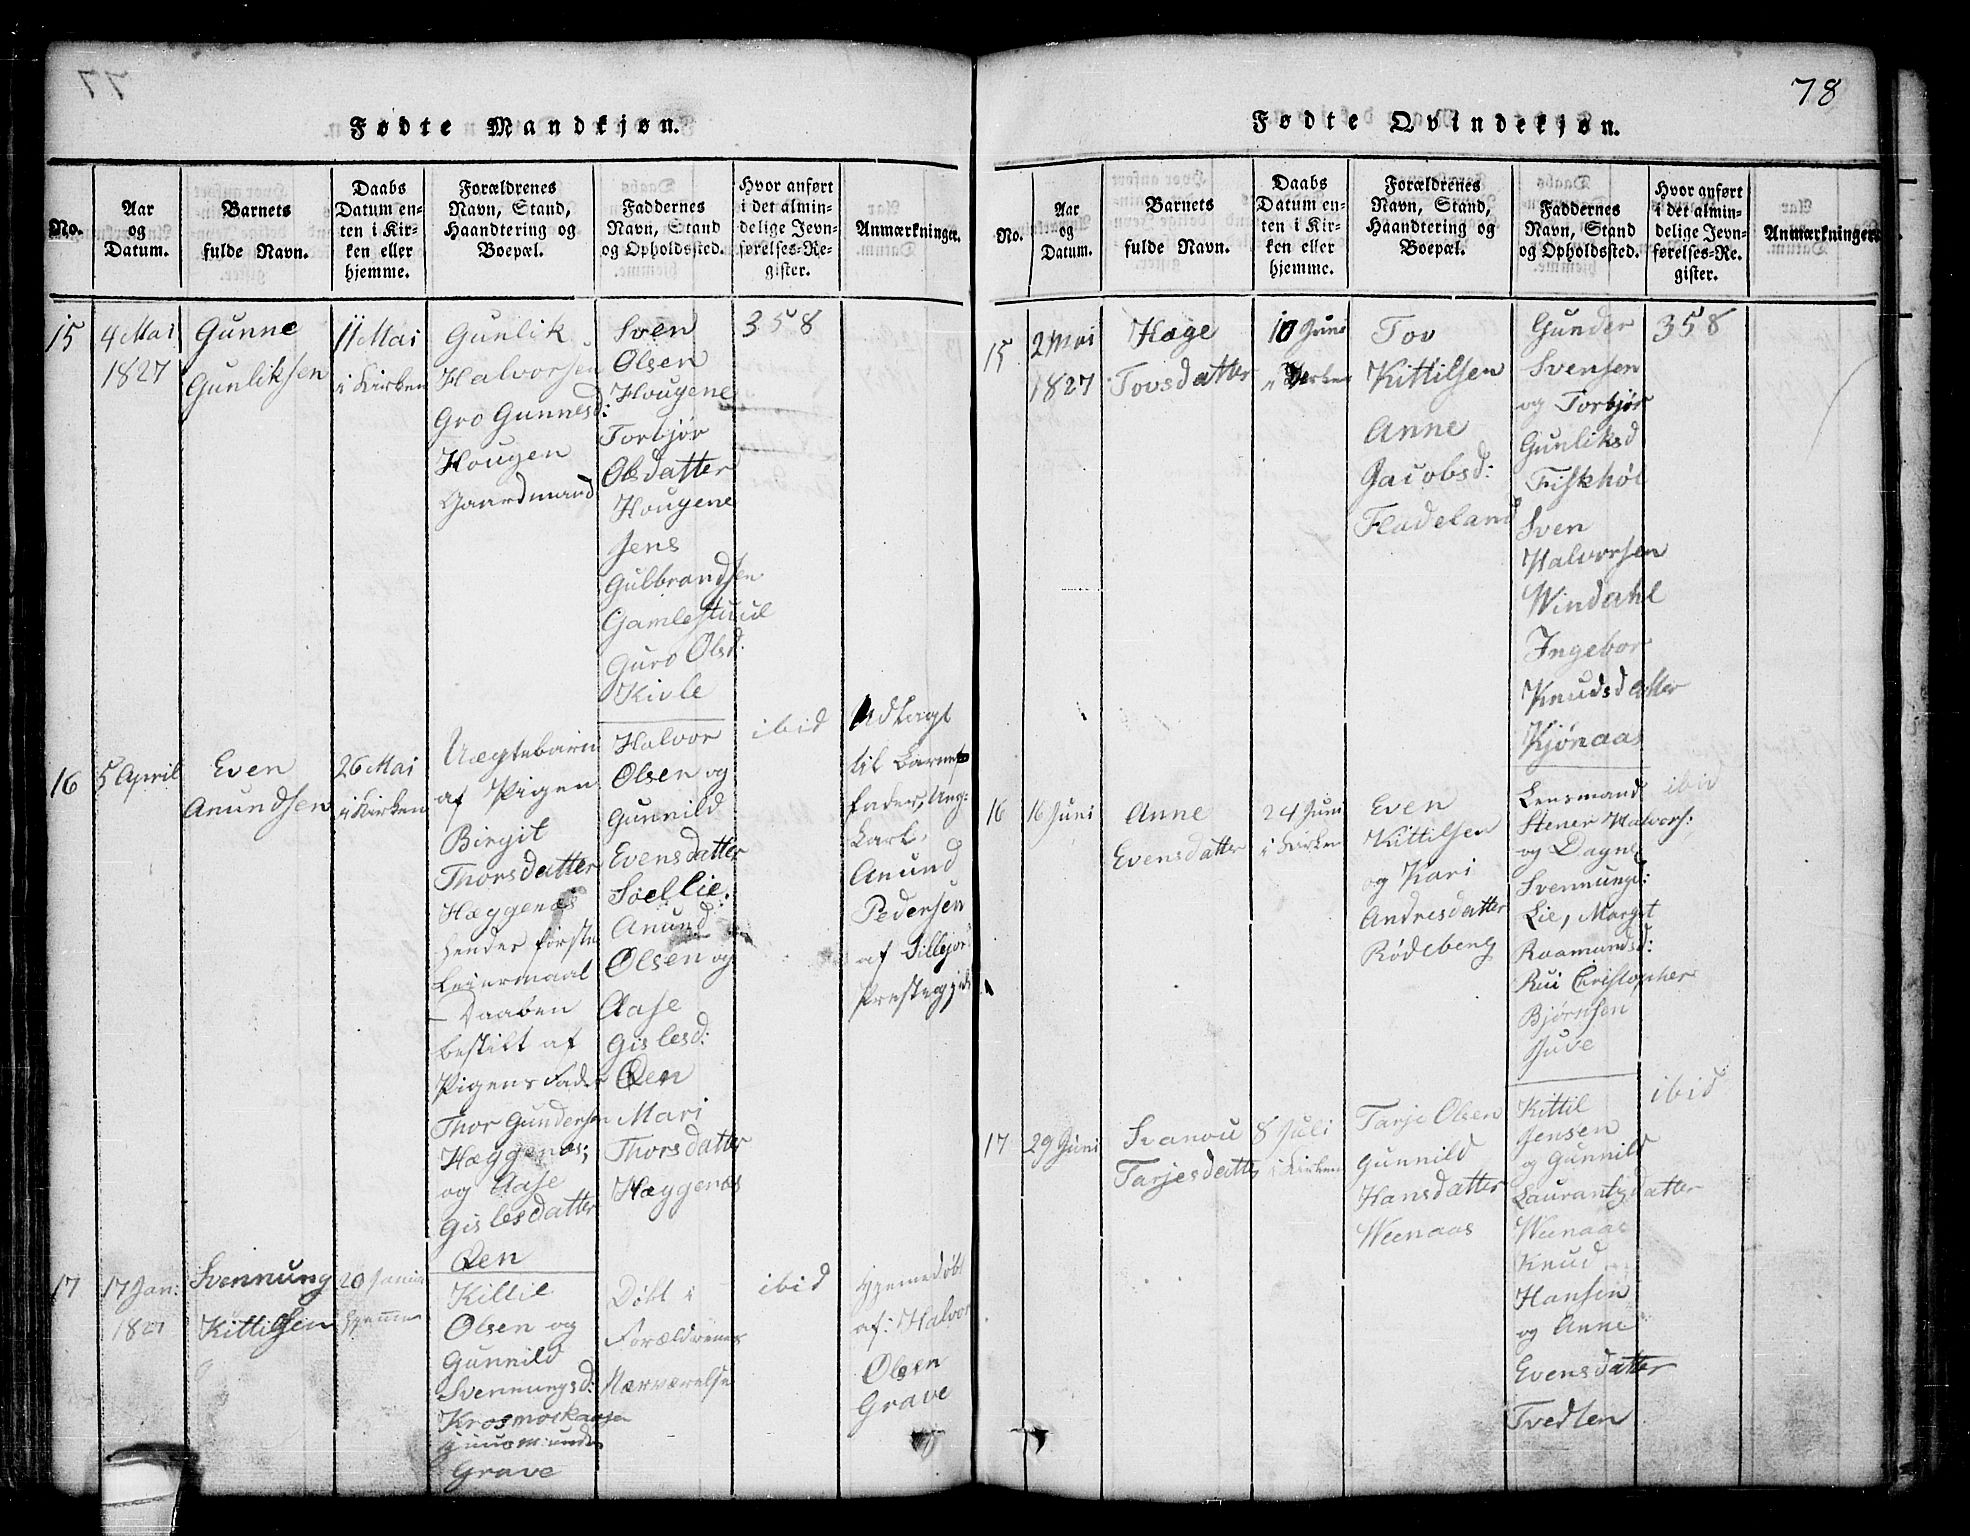 77
Fødte Mandkjøn.
No.
Aar
og
Datum.
Barnets
fulde Navn.
Daabs
Datum en-
ten i Kir-
ken eller
hjemme.
Forældrenes
Navn, Stand,
Haandtering og
Boepæl.
Faddernes
Navn, Stand
og Opholdssted.
Hvor anført
i det almin-
delige Jevn-
førelses-Re-
gister.
Anmærkninger.
15
4 Mai
1827
Gunne
Gunliksen
11 Mai
i Kirken
Gunlik
Halvorsen
Gro Gunnesd:
Hougen
Gaardmand
Sven
Olsen
Hougene
Torbjør
Olsdatter
Hougene
Jens
Gulbrandsen
Gamlestuul
Guro Olsd:
Kivle
358
16
5 April
Even
Anundsen
26 Mai
i Kirken
Uægtebarn
af Pigen
Birgit
Thorsdatter
Hæggenæs
hendes første
Leiermaal
- Daaben
bestilt af
Pigens Fader
Thor Gundersen
Hæggenæs;
og Aase
Gislesdatter
Qen
Halvor
Olsen og
Gunnild
Evensdatter
Soellie.
Anund
Olsen og
Aase
Gislesd:
Qen
Mari
Thorsdatter
Hæggenæs
ibid
Udlagt
til Barnets
fader, Ung-
karl,
Anund
Pedersen
af Sillejord
Præstegjeld
17
17 Jan:
1827
Svennung
Kittilsen
20 Janua
hjemme
Kittil
Olsen og
Gunnild
Svennungsd:
Krosmoekaasa
Grave
Døbt i
Forældrenes
Nærværelse
ibid
Hjemedøbt
af: Halvor
Olsen
Grave
78
Fødte Qvindekjøn.
No.
Aar
og
Datum.
Barnets
fulde Navn.
Daabs
Datum en-
ten i Kir-
ken eller
hjemme.
Forældrenes
Navn, Stand,
Haandtering og
Boepæl.
Faddernes
Navn, Stand
og Opholdssted.
Hvor anført
i det almin-
delige Jevn-
førelses-Re-
gister.
Anmærkninger.
15
2 Mai
1827
Hæge
Tovsdatter
10 Juni
i Kirken
Tov
Kittilsen
Anne
Jacobsd:
Fladeland
Gunder
Svensen
og Torbjør
Gunliksd
Fiskhøl
Sven
Halvorsen
Windahl
Ingebor
Knudsdatter
Kjønaas
358
16
16 Juni
Anne
Evensdatter
24 Juni
i Kirken
Even
Kittilsen
og Kari
Andresdatter
Rødeberg
Lensmand
Stener Halvors:
og Dagne
Svennungd:
Lie, Margit
Roamundsd:
Rui Christopher
Bjørnsen
Juve
ibid
17
29 Juni
Svanou
Tarjesdatte
8 Juli
i Kirken
Tarje Olsen
Gunnild
Hansdatter
Weenaas
Kittil
Jensen
og Gunnild
Laurantzdatter
Weenaas
Knud
Hansen
og Anne
Evensdatter
Tvedten
ibid